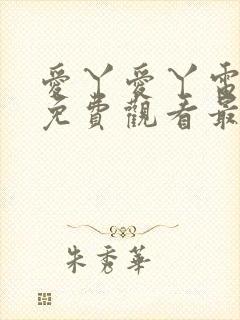 愛丫愛丫電
免費觀看最
朱秀華